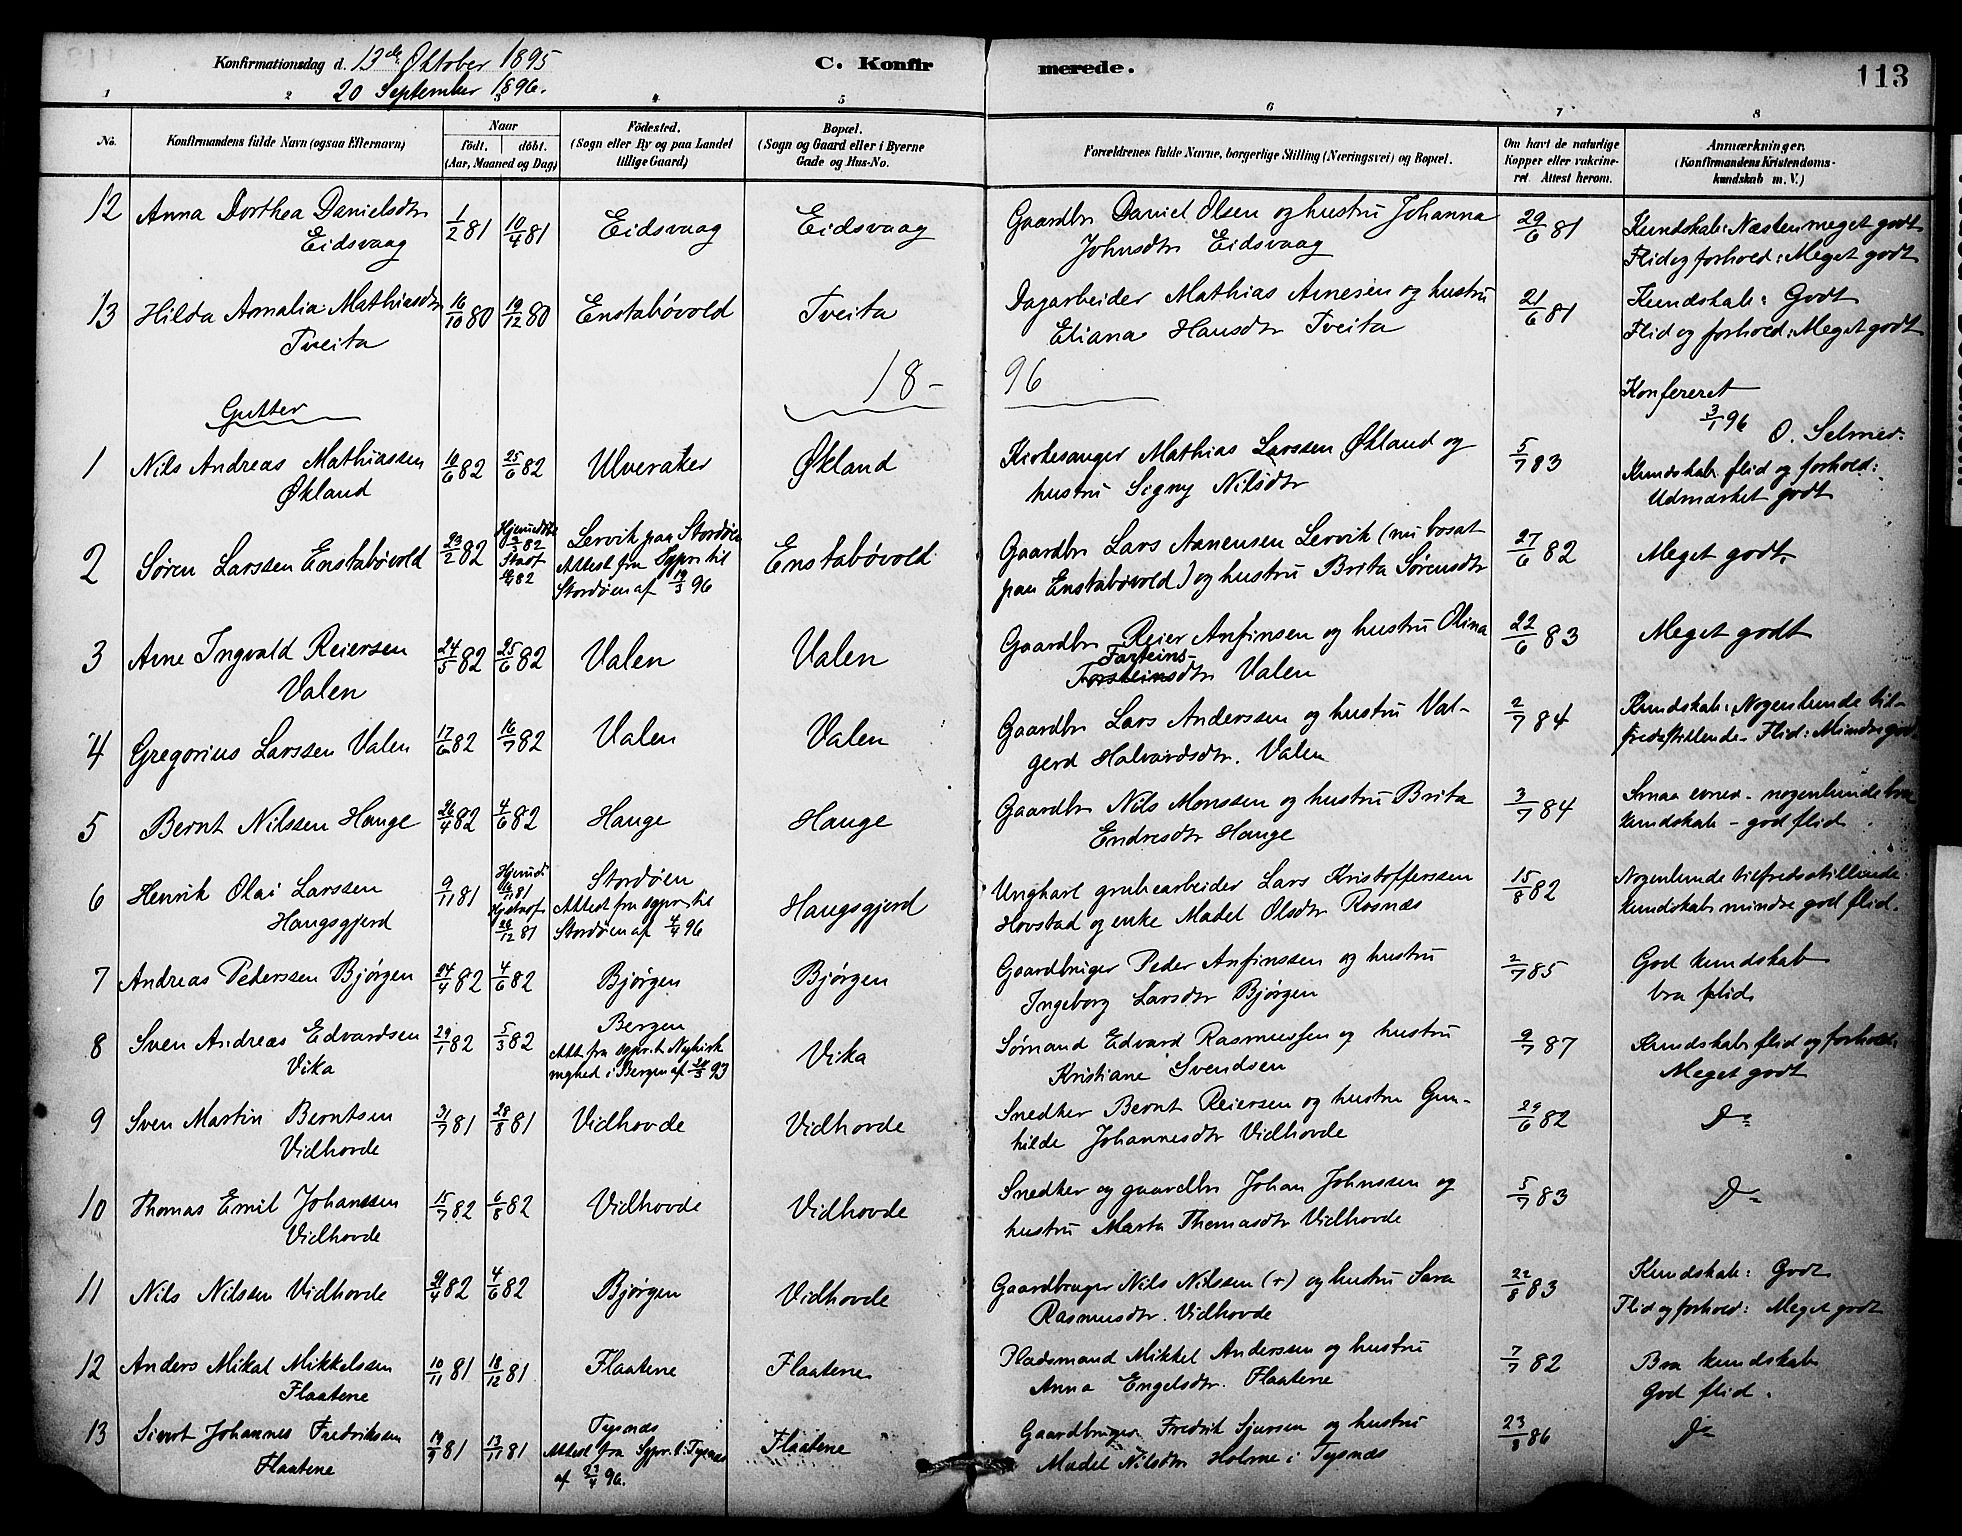 113
Konfirmationsdag d. 13de Oktober 1895
20 September 1896.
C. Konfirmerede.
1 2 3 4 5 6 7 8
No.
Konfirmandens fulde Navn (ogsaa Efternavn)
Naar
födt. döbt.
(Aar, Maaned og Dag)
Födested.
(Sogn eller By og paa Landet
tillige Gaard)
Bopæl.
(Sogn og Gaard eller i Byerne
Gade og Hus-No.
Forældrenes fulde Navne, borgerlige Stilling (Næringsvei) og Bopæl.
Om havt de naturlige
Kopper eller vakcine-
ret. Attest herom.
Anmærkninger.
(Konfirmandens Kristendoms-
kundskab m. V.)
12 Anna Dorthea Danielsdtr 1/2 81 10/4 81 Eidsvaag Eidsvaag Gaardbr Daniel Olsen og hustru Johanna 29/6 81 Kundskab: Næsten meget godt
Eidsvaag Johnsdtr Eidsvaag Flid og forhold: Meget godt
13 Hilda Amalia Mathiasdtr 16/10 80 19/12 80 Enstabøvold Tveita Dagarbeider Mathias Arnesen og hustru 21/6 81 Kundskab: Godt
Tveita Eliana Hansdtr Tveita Flid og forhold: Meget godt
18-96
Konfereret
3/1 96 O. Selmer.
Gutter
1 Nils Andreas Mathiassen 10/6 82 25/6 82 Ulveraker Økland Kirkesanger Mathias Larssen Økland og 5/7 83 Kundskab flid og forhold:
Økland hustru Signy Nilsdtr Udmærket godt
2 Søren Larssen Enstabøvold 23/2 82 Hjemedøbt 82 Stadf 82 Lervik paa Stordøen Enstabøvold Gaardbr Lars Lervik (nu bosat 27/6 82 Meget godt.
Attest fra Sgpr. til paa Enstabøvold) og hustru Brita Sørensdtr
Stordøen af 19/3 96
3 Arne Ingvald Reiersen 24/5 82 25/6 82 Valen Valen Gaardbr Reier Anfinsen og hustru Olina 22/6 83 Meget godt
Valen Farteins-
Torsteinsdtr Valen
4 Gregorius Larssen Valen 17/6 82 16/7 82 Valen Valen Gaardbr Lars Anderssen og hustru Val- 2/7 84 Kundskab: Nogenlunde til-
gerd Halvardsdtr. Valen fredsstillende. Flid: Mindre god
5 Bernt Nilssen Hauge 26/4 82 4/6 82 Hauge Hauge Gaardbr Nils Monssen og hustru Brita 3/7 84 Smaa evner - nogenlunde bra
Endresdtr Hauge kundskab - god flid
6 Henrik Olai Larssen 9/11 81 Hjemdt 81 Stadf 26/12 81 Stordøen Haugsgjerd Ungkarl grubearbeider Lars Kristofferssen 15/8 82 Nogenlunde tilfredsstillende
Haugsgjerd Attest fra sgpr. til Hovstad og enke Madel Olsdtr Rosnæs kundskab mindre god flid.
Stordøen af 4/4 96
7 Andreas Pederssen Bjørgen 24/4 82 4/6 82 Bjørgen Bjørgen Gaardbruger Peder Anfinssen og hustru 2/7 85 God kundskab
Ingeborg Larsdtr Bjørgen bra flid
8 Sven Andreas Edvardsen 29/1 82 5/3 82 Bergen Vika Sømand Edvard Rasmussen og hustru 9/7 87 Kundskab flid og forhold:
Vika Att. fra sgpr. t. Nykirk Kristiane Svendsen Meget godt
mghed i Bergen af 93
9 Sven Martin Berntsen 31/7 81 28/8 81 Vidhovde Vidhovde Snedker Bernt Reiersen og hustru Gun- 29/6 82 Do
Vidhovde hilde Johannesdtr Vidhovde
10 Thomas Emil Johanssen 15/7 82 6/8 82 Vidhovde Vidhovde Snedker og gaardbr Johan Johnssen og 5/7 83 Do
Vidhovde hustru Marta Thomasdtr Vidhovde
11 Nils Nilssen Vidhovde 21/4 82 4/6 82 Bjørgen Vidhovde Gaardbruger Nils Nilssen (+) og hustru Sara 22/8 83 Kundskab: Godt
Rasmusdtr. Vidhovde Flid og forhold: Meget godt
12 Anders Mikal Mikkelssen 10/11 81 18/12 81 Flaatene Flaatene Pladsmand Mikkel Anderssen og hustru 7/7 82 Bra kundskab
Flaatene Anna Engelsdtr. Flaatene God flid.
13 Sivert Johannes Fredriksen 19/9 81 13/11 81 Tysnæs Flaatene Gaardbruger Fredrik Sjursen og hustru 23/8 86 Do
Flaatene Attest fra Sgpr. t. Tysnæs Madel Nilsdtr Holme i Tysnæs
af 23/4 96.